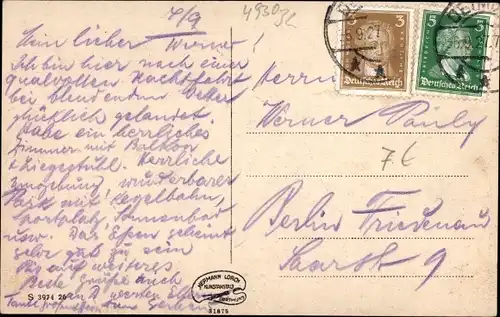 7/9
49303L
Mein lieber Werner!
Ich bin hier nach einer
qualvollen Nachtfahrt
bei blendendem Wetter
glücklich gelandet.
Habe ein herrliches
Zimmer mit Balkon
+ Liegestuhl. Herrliche
Umgebung, wunderbarer
Park mit Kegelbahn,
Sportplatz, Sonnenbad
usw. Das Essen scheint
sehr gut zu sein
Bis auf weiteres
Beste Grüße auch
an
S 3974 26
3 3
Deutsches Reich
5 5
Deutsches Reich
DETMO
9.27
Herrn
Werner Pauly
7€
Berlin Friedenau
Saarstr 9
HERMANN LORCH
KUNSTANSTALT
DORTMUND
31875